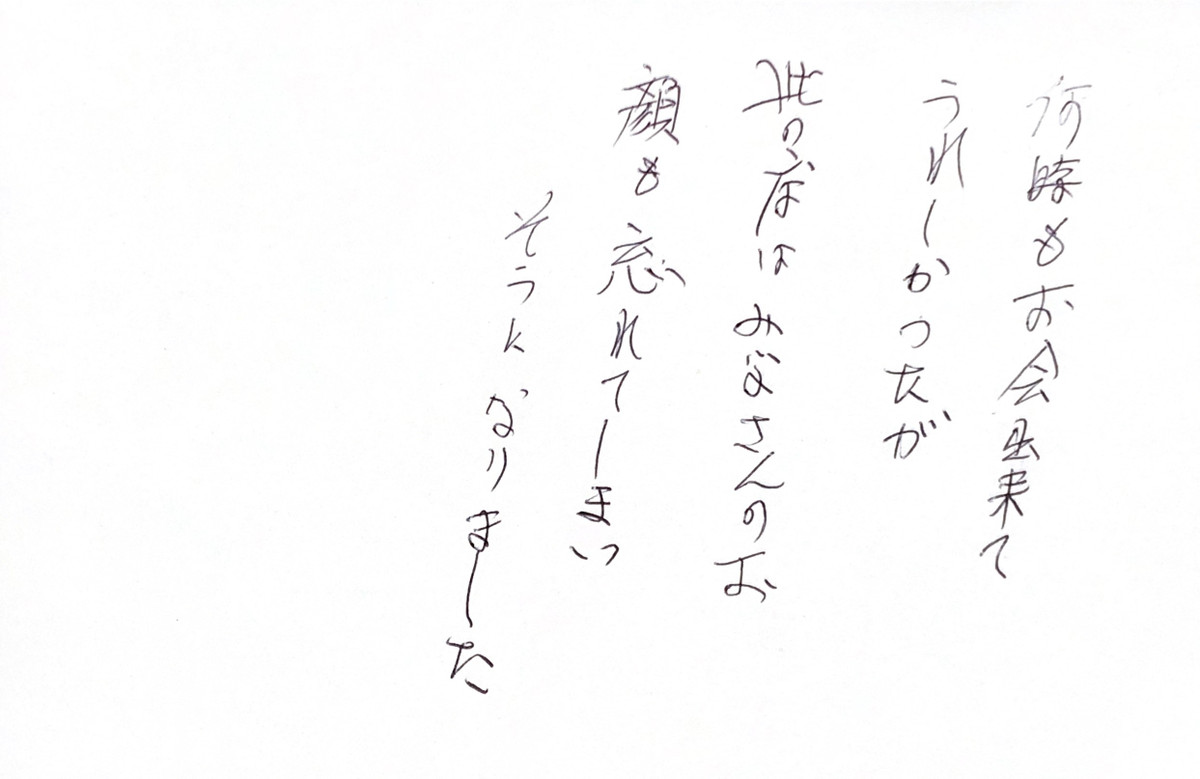 何時もお会出来て
うれしかったが
此の度はみなさんのお
顔も忘れてしまい
そうになりました